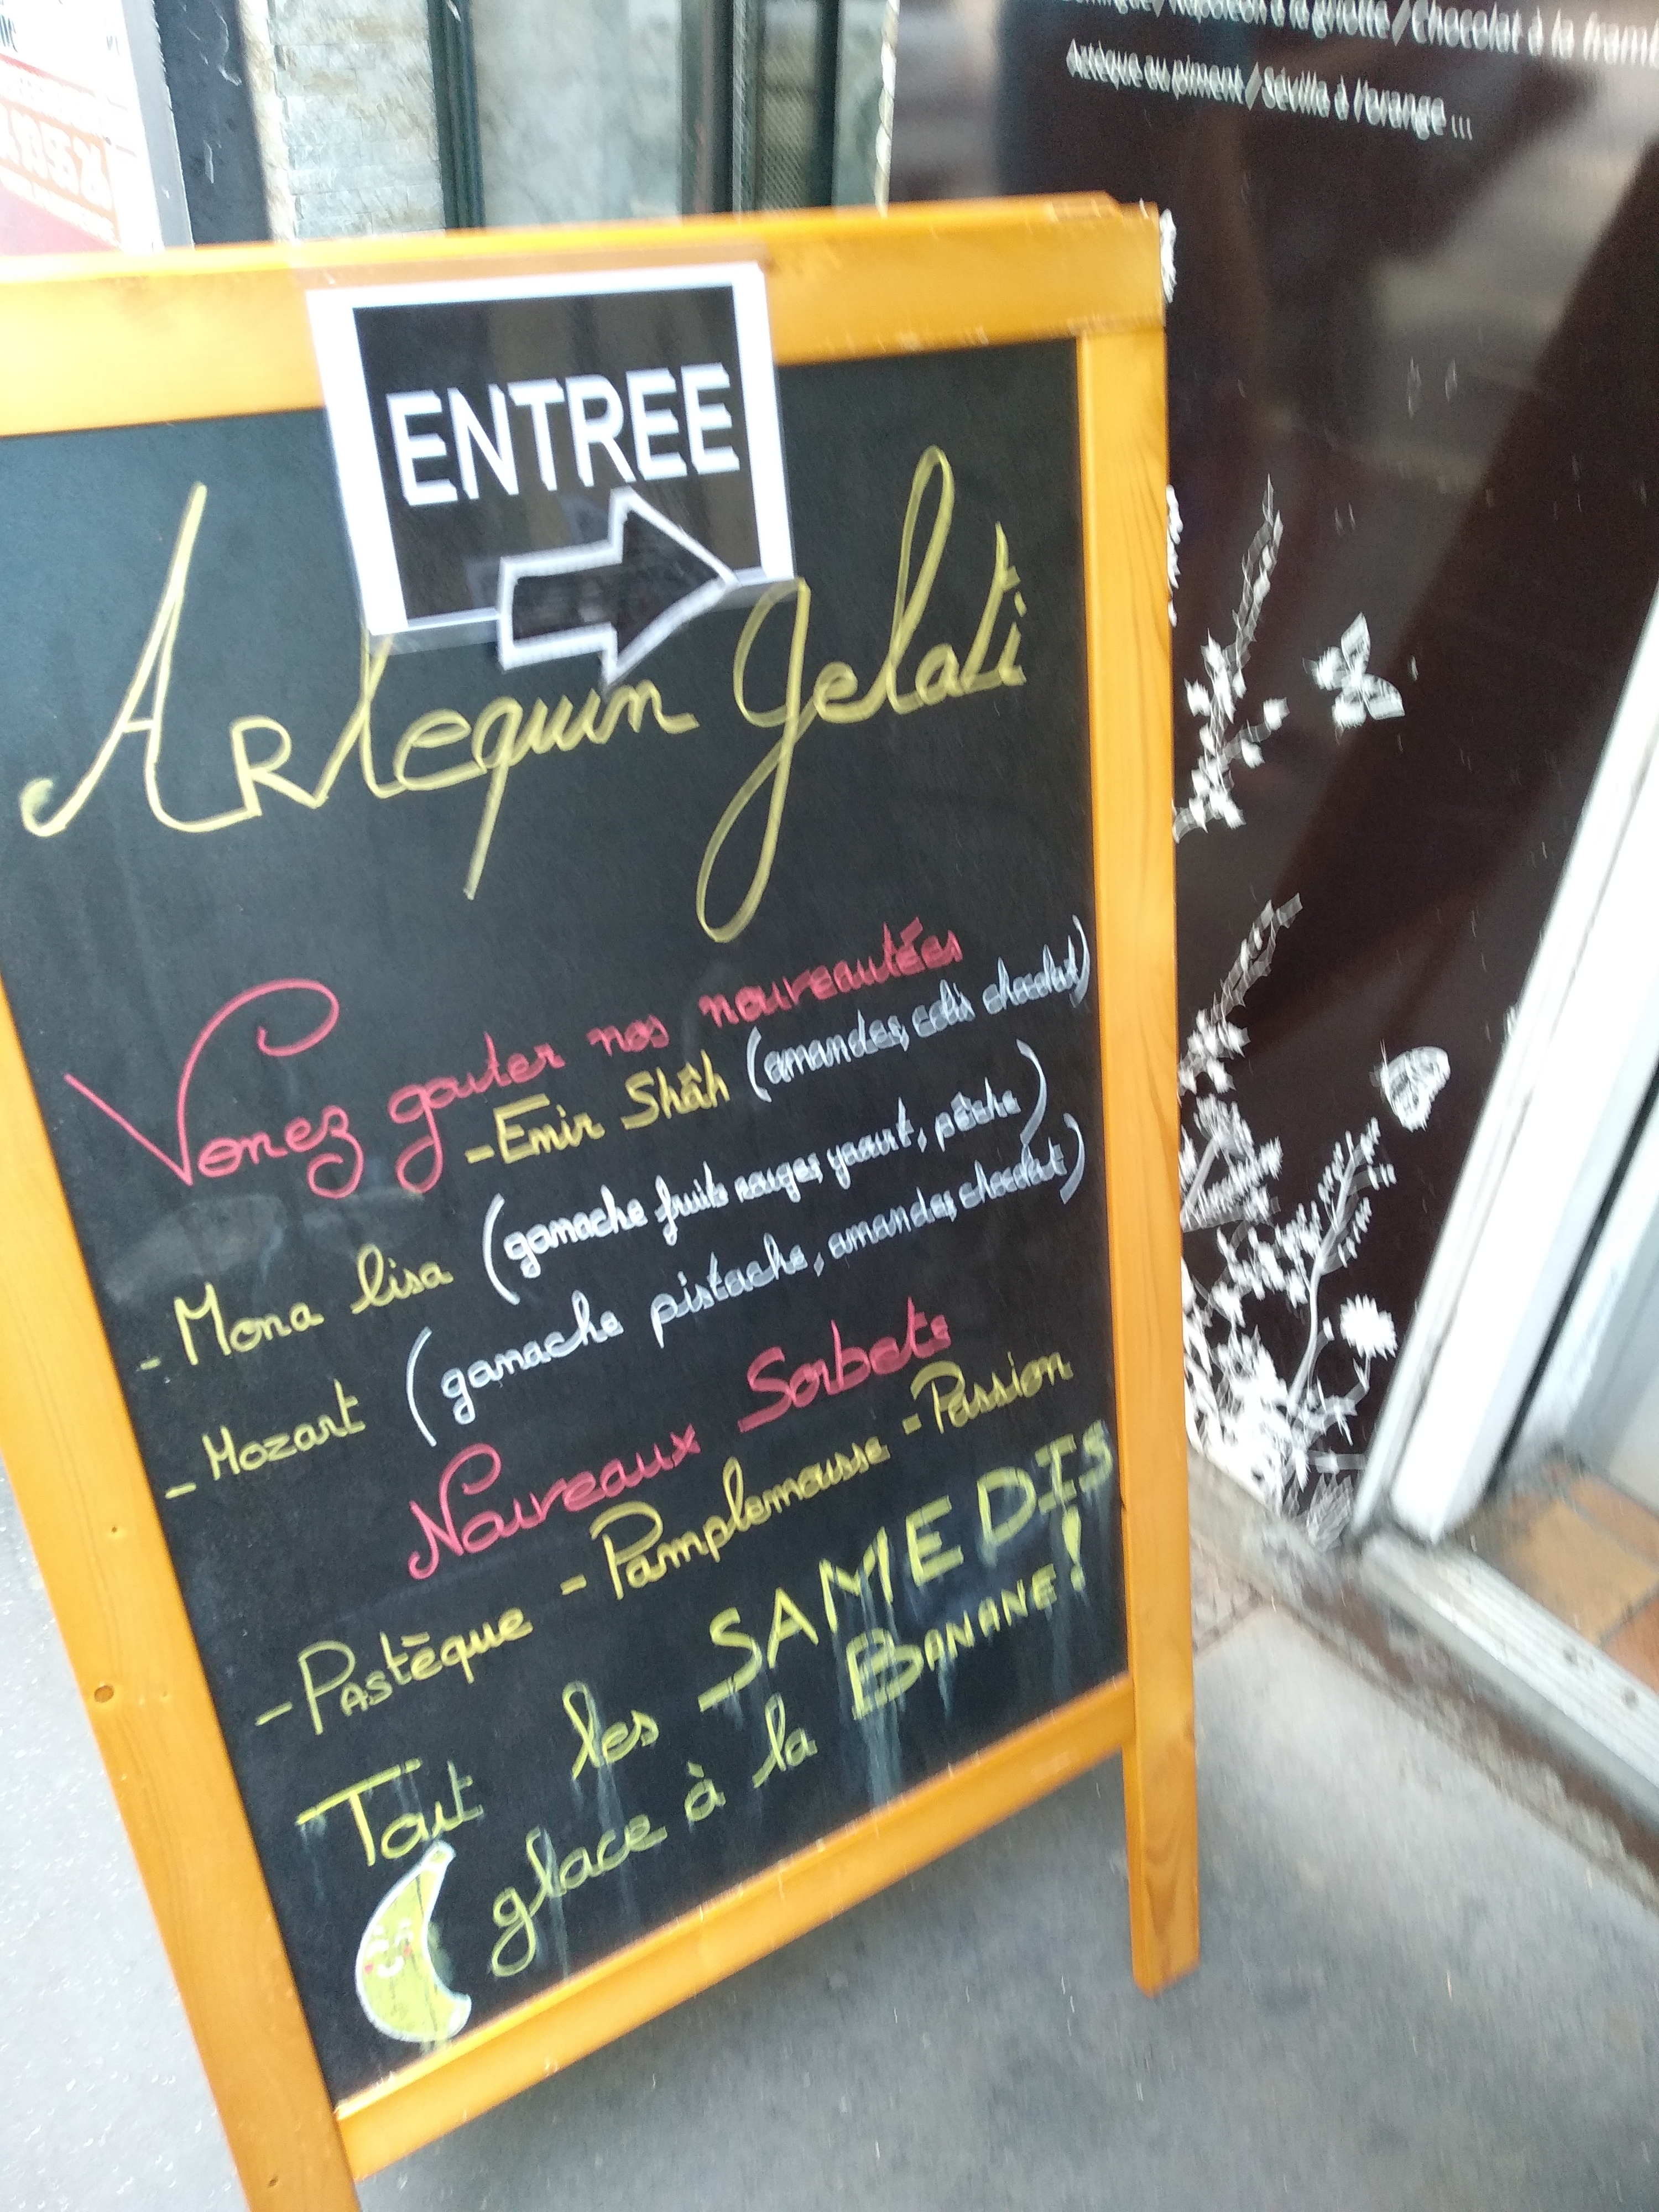 Napoléon à la griotte / Chocolat à la framb
Aztèque au piment / Séville à l'orange ...
ENTREE
Arlequin Gelati
Venez gouter nos nouveautées
- Emir Shâh (amandes, chocolat)
- Mona lisa (ganache fruits rouges, yaourt, pêche)
- Mozart (ganache pistache, amandes, chocolat)
Nouveaux Sorbets
- Pastèque - Pamplemousse - Passion
Tout les SAMEDIS
glace à la BANANE!